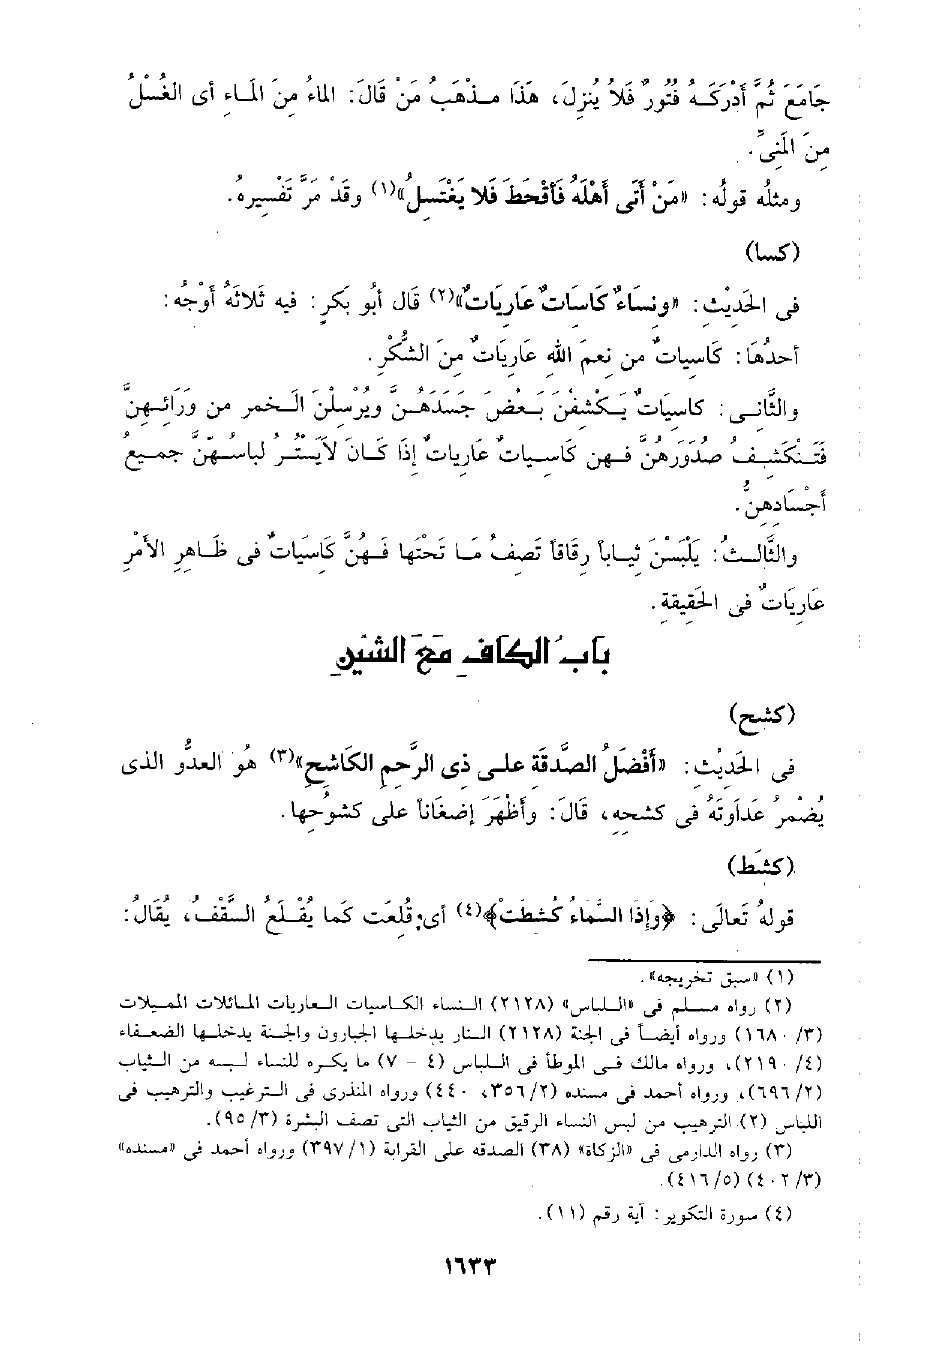 جَامَعَ ثُمَّ أَدْرَكَهُ فُتُورٌ فَلاَ يُنزِلَ، هَذَا مذْهَبُ مَنْ قَالَ: الماءُ مِنَ المَاءِ أى الغُسْلُ
مِنَ المَنِىِّ.
ومثلُه قولُه: «مَنْ أَتَى أَهْلَهُ فَأَقْحَطَ فَلا يَغْتَسِلُ»(١) وقَدْ مَرَّ تَفْسِيرُه.
(كسا)
فى الحَدِيْثِ: «ونسَاءٌ كَاسَاتٌ عَارِيَاتٌ»(٢) قَال أبُو بَكرٍ: فيه ثَلاثَةُ أَوْجُه:
أحدُهَا: كَاسِيَاتٌ من نِعمَ الله عَارِيَاتٌ مِنَ الشُّكْرِ.
والثَّانى: كاسِيَاتٌ يَكْشفْنَ بَعضَ جَسَدَهنَّ ويُرْسلْنَ الخَمر من وَرَائِهنَّ
فَتَنْكَشِفُ صُدُوَرَهُنَّ فهن كَاسِيات عَارياتٌ إذَا كَانَ لاَيَسْتُر لباسُهنَّ جميعُ
أجْسَادهنَّ.
والثَّالثُ: يَلْبَسْنَ ثياباً رقَاقاً تَصفُ مَا تَحْتَها فَهُنَّ كَاسِيَاتٌ فى ظَاهرِ الأمْرِ
عَارِيَاتٌ فى الحَقِيقَةِ.
بَابُ الكَافِ مَعَ الشِّينِ
(كشح)
فى الحَدِيْثِ: «أَفْضَلُ الصَّدَقة على ذِى الرَّحِمِ الكَاشِحِ»(٣) هُوَ العدُّو الذى
يُضْمرُ عَدَاوَتَهُ فى كشحِهِ، قَالَ: وأظْهَرَ إضغَاناً على كشُوحُها.
(كشَط)
قولهُ تَعالَى: ﴿وَإِذَا السَّمَاءُ كُشِطَتْ﴾(٤) أى: قُلِعَت كما يُقْلَعُ السَّقْفُ، يُقَالُ:
(١) «سبق تخريجه».
(٢) رواه مسلم فى «اللباس» (٢١٢٨) النساء الكاسيات العاريات المائلات المميلات
(٣/ ١٦٨٠) ورواه أيضاً فى الجنة (٢١٢٨) النار يدخلها الجبارون والجنة يدخلها الضعفاء
(٤/ ٢١٩٠)، ورواه مالك فى الموطأ فى اللباس (٤ - ٧) ما يكره للنساء لبسه من الثياب
(٢/ ٦٩٦)، ورواه أحمد فى مسنده (٢/ ٣٥٦، ٤٤٠) ورواه المنذرى فى الترغيب والترهيب فى
اللباس (٢) الترهيب من لبس النساء الرقيق من الثياب التى تصف البشرة (٣/ ٩٥).
(٣) رواه الدارمى فى «الزكاة» (٣٨) الصدقه على القرابة (١/ ٣٩٧) ورواه أحمد فى «مسنده»
(٣/ ٤٠٢) (٥/ ٤١٦).
(٤) سورة التكوير: آية رقم (١١).
١٦٣٣